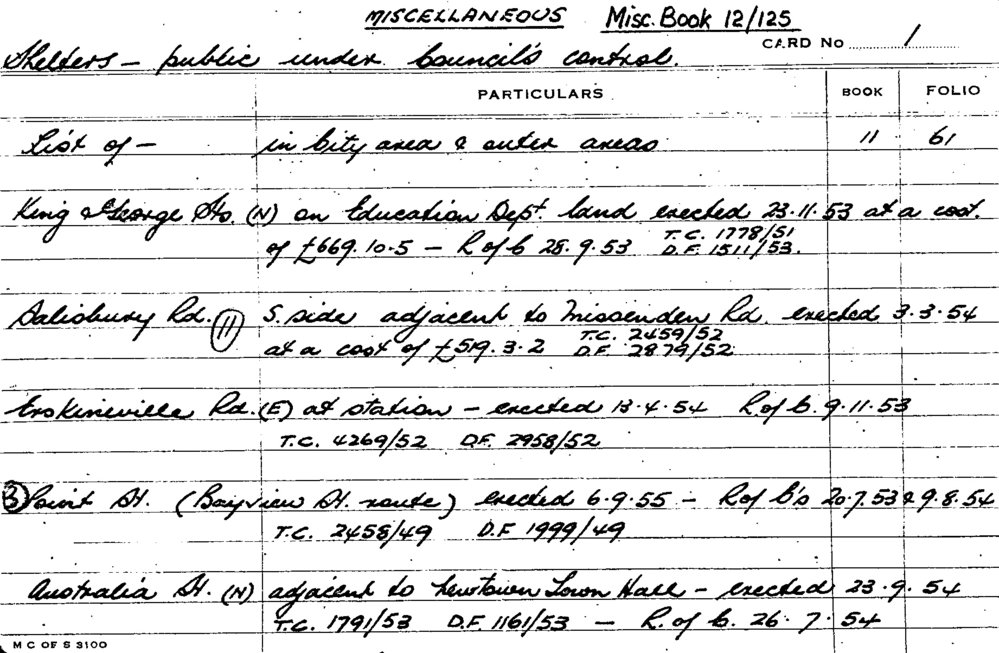 MISCELLANEOUS Misc. Book 12/125
CARD No 1
Shelters – public under Council's control.
PARTICULARS BOOK FOLIO
List of – in City area & outer areas 11 61
King & George Sts. (N) on Education Dept. land erected 23.11.53 at a cost
of £669.10.5 – R of C 28.9.53 T.C. 1778/51
D.F. 1511/53.
Salisbury Rd. (11) S. side adjacent to Missenden Rd. erected 3.3.54
at a cost of £519.3.2 T.C. 2459/52
D.F. 2879/52
Erskineville Rd. (E) at station – erected 13.4.54 R of C. 9.11.53
T.C. 4269/52 D.F. 2958/52
(3) Point St. (Bayview St. route) erected 6.9.55 – R of C's 20.7.53 & 9.8.54
T.C. 2458/49 D.F 1999/49
Australia St. (N) adjacent to Newtown Town Hall – erected 23.9.54
T.C. 1791/53 D.F. 1161/53 – R. of C. 26.7.54
M C OF S 3100